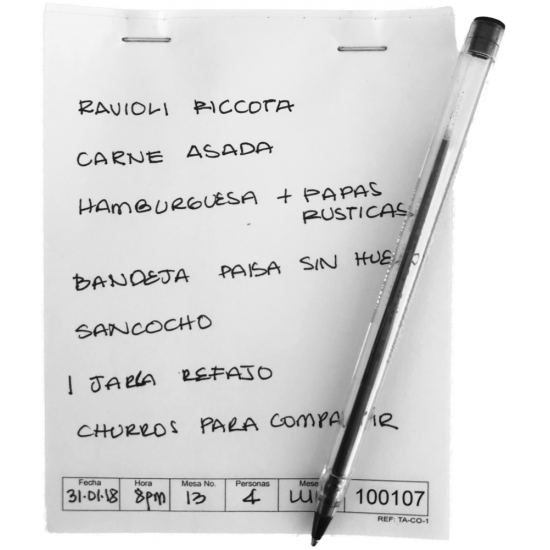 RAVIOLI RICCOTA
CARNE ASADA
HAMBURGUESA + PAPAS
RUSTICAS
BANDEJA PAISA SIN
SANCOCHO
1 JARRA REFAJO
CHURROS PARA
Fecha Hora Mesa No. Personas
31.01.18 8pm 13 4 100107
REF: TA-CO-1